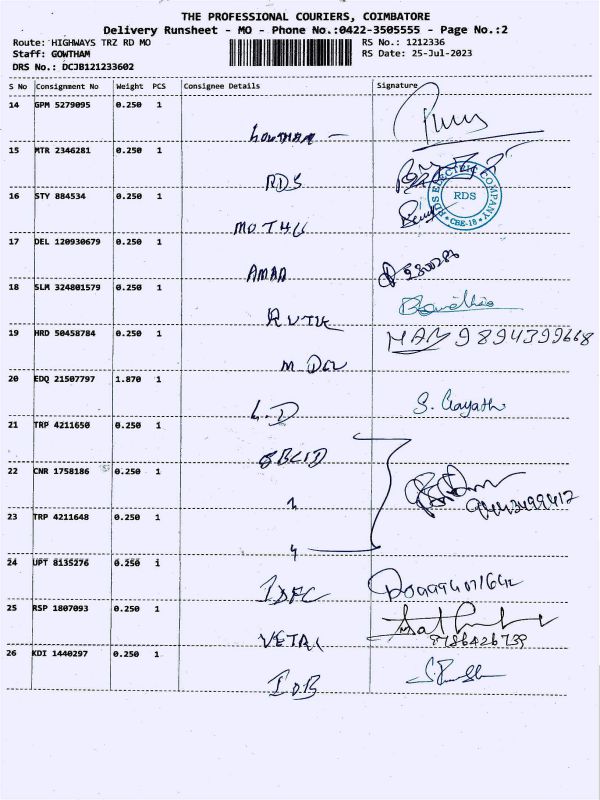 THE PROFESSIONAL COURIERS, COIMBATORE
Delivery Runsheet - MO - Phone No.:0422-3505555 - Page No.:2
Route: HIGHWAYS TRZ RD MO RS No.: 1212336
Staff: GOWTHAM RS Date: 25-Jul-2023
DRS No.: DCJB121233602
S No Consignment No Weight PCS Consignee Details Signature
14 GPM 5279095 0.250 1
15 MTR 2346281 0.250 1
RDS
RDS ELECTRIC COMPANY
RDS
* CBE-18 *
16 STY 884534 0.250 1
MOTHU
17 DEL 120930679 0.250 1
18 SLM 324801579 0.250 1
19 HRD 50458784 0.250 1
9894399668
20 EDQ 21507797 1.870 1
L.D
S. Gayathri
21 TRP 4211650 0.250 1
22 CNR 1758186 0.250 1
23 TRP 4211648 0.250 1
24 UPT 8135276 0.250 1
IDFC
25 RSP 1807093 0.250 1
9786426739
26 KDI 1440297 0.250 1
IOB